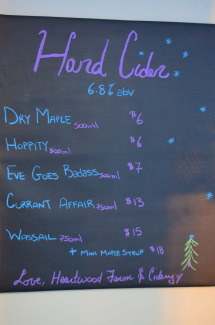 Hard Cider
6.8% abv
DRY MAPLE 500ml $6
HOPPITY 500ml $6
EVE GOES BADASS 500ml $7
CURRANT AFFAIR 750ml $13
WASSAIL 750ml $15
+ MINI MAPLE SYRUP $18
Love, Heartwood Farm & Cidery